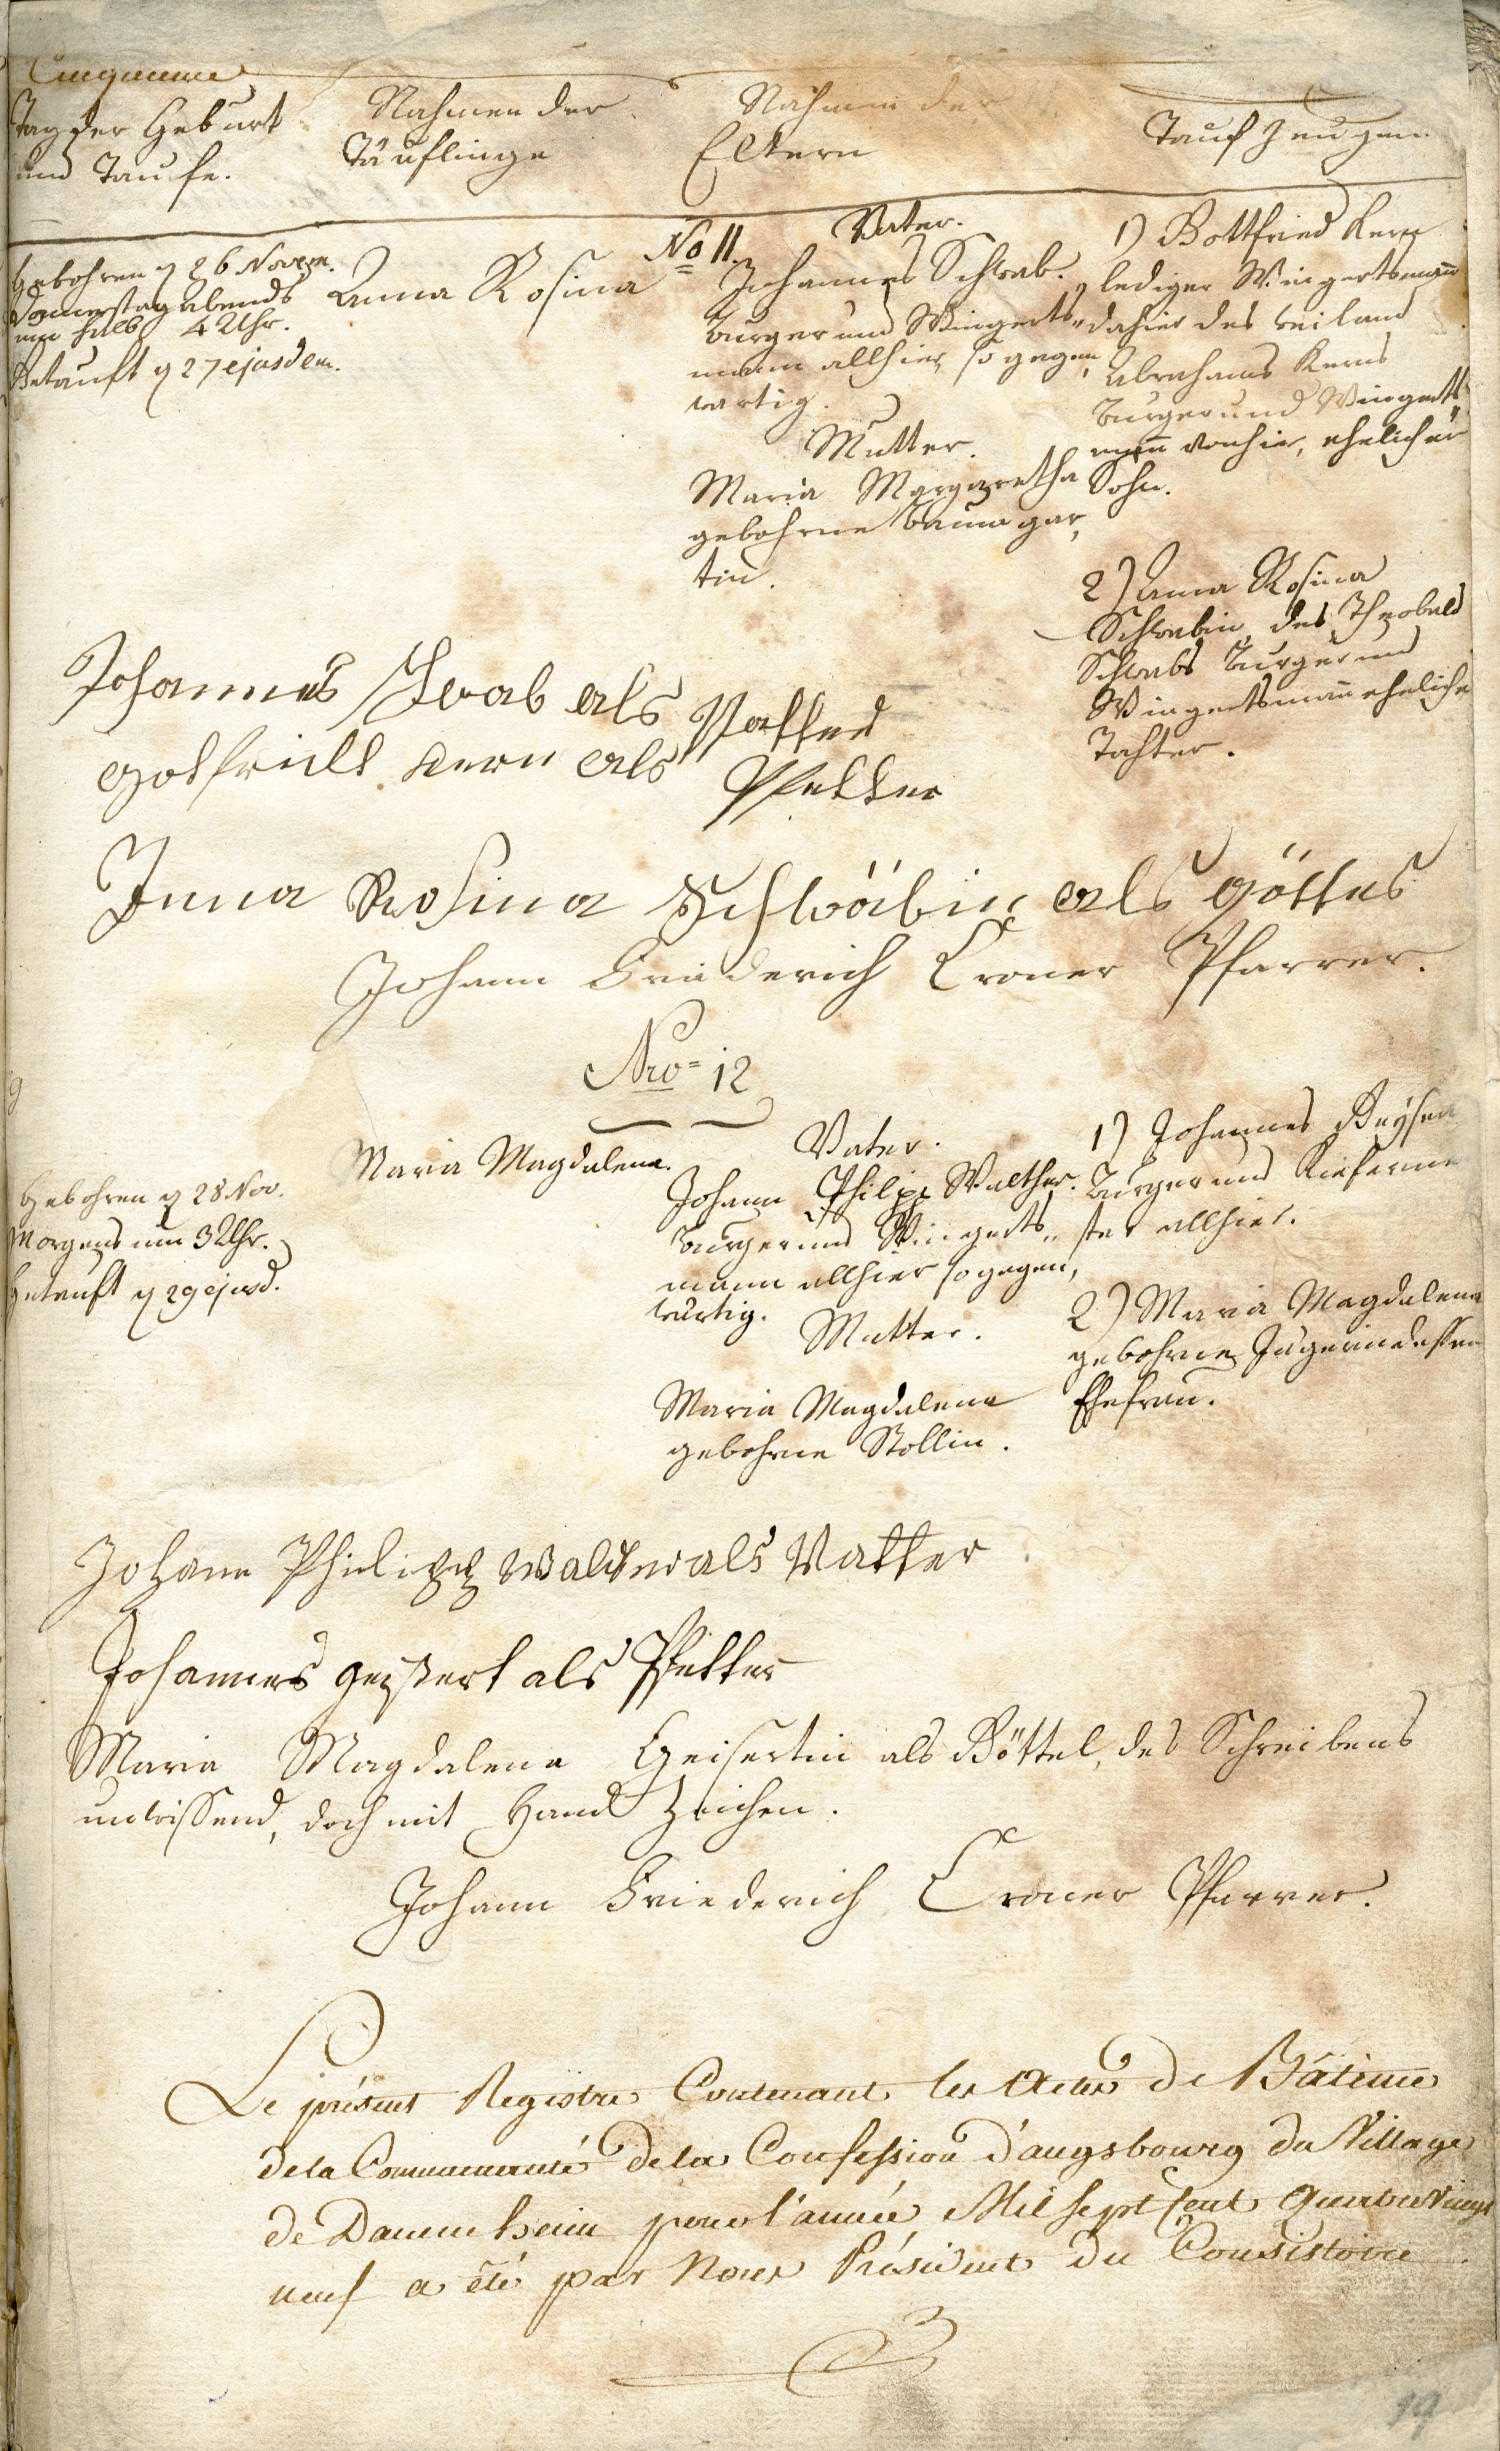 Tag der Geburt
und Taufe.
Nahmen der
Täuflinge
Nahmen der
Eltern
Taufzeugen.
No 11.
Gebohren d 26 Novem.
Donnerstag abends
um halb 4 Uhr.
Getauft d 27 ejusdem.
Anna Rosina
Vater.
Johannes Schwab.
Burger und Wingerts„
mann allhier, so gegen,
wartig.
Mutter.
Maria Margaretha
gebohrne Baumgar,
tin.
1) Gottfried Kern
lediger Wingertsmañ
dahier des weiland
Abrahams Kerns
Burger und Wingerts„
mañ von hier, ehelicher
Sohn.
2) Anna Rosina
Schwabin, des Theobald
Schwabs Burger und
Wingertsmañ eheliche
Tochter.
Johannes Schwab als Vatter
Gotfridt Kern als Pfetter
Anna Rosina Schwäbin als Göttel
Johann Friederich Croner Pfarrer.
Nro= 12
Gebohren d 28 Nov.
Morgends um 3 Uhr.
Getauft d 29 ejusd.
Maria Magdalena.
Vater.
Johann Philipp Walther.
Burger und Wingerts„
mann allhier so gegen,
wärtig.
Mutter.
Maria Magdalena
gebohrne Stollin.
1) Johannes
Burger und Kieferme
ster allhier.
2) Maria Magdalena
gebohrne Jägerin dessen
Ehefrau.
Johann Philipp Walter als Vatter
Johannes Geissert als Pfetter
Maria Magdalena Geisertin als Göttel, des Schreibens
unwissend, doch mit Hand Zeichen.
Johann Friederich Croner Pfarrer.
Le présent Registre Contenant les Actes de Bâteme
de la Communauté de la Confession d'augsbourg du Village
de Dammheim pour l'année Mil sept Cent Quatre Vingt
neuf a été par Nous Président du Consistoire
19